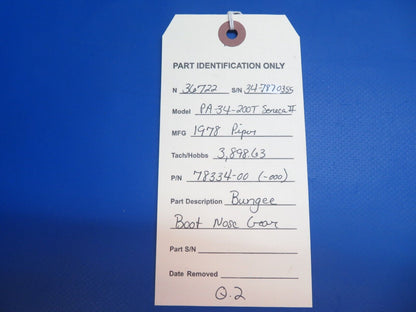 PART IDENTIFICATION ONLY
N 36722 S/N 34-7870355
Model PA-34-200T Seneca II
MFG 1978 Piper
Tach/Hobbs 3,898.63
P/N 78334-00 (-000)
Part Description Bungee
Boot Nose Gear
Part S/N
Date Removed
Q.2